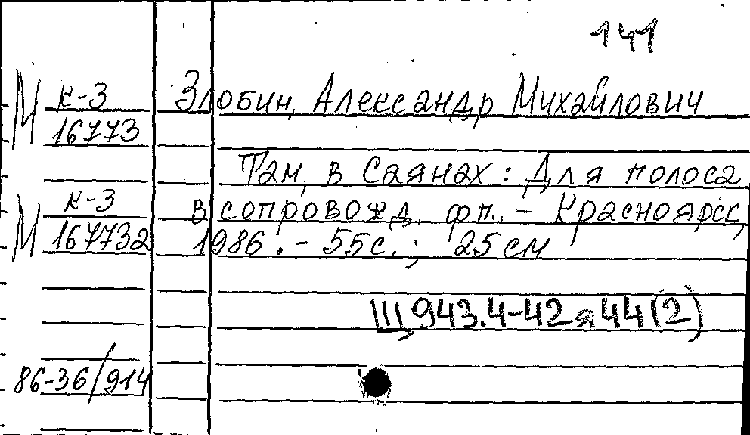 141
М к-3 Злобин, Александр Михайлович
16773
Там, в Саянах : Для голоса
М к-3 в сопровожд. фп. - Красноярск,
167732 1986. - 55с.; 25 см
Щ943.4-42я44(2)
86-36/914